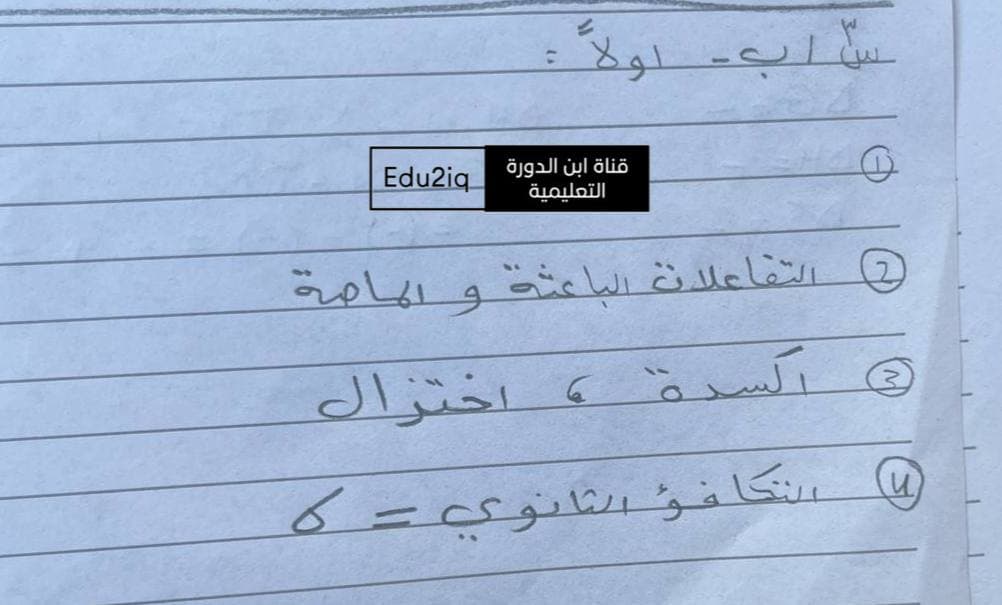 س٣ / ب - اولاً :
①
Edu2iq قناة ابن الدورة التعليمية
② التفاعلات الباعثة و الماصة
③ اكسدة ، اختزال
④ التكافؤ الثانوي = 6